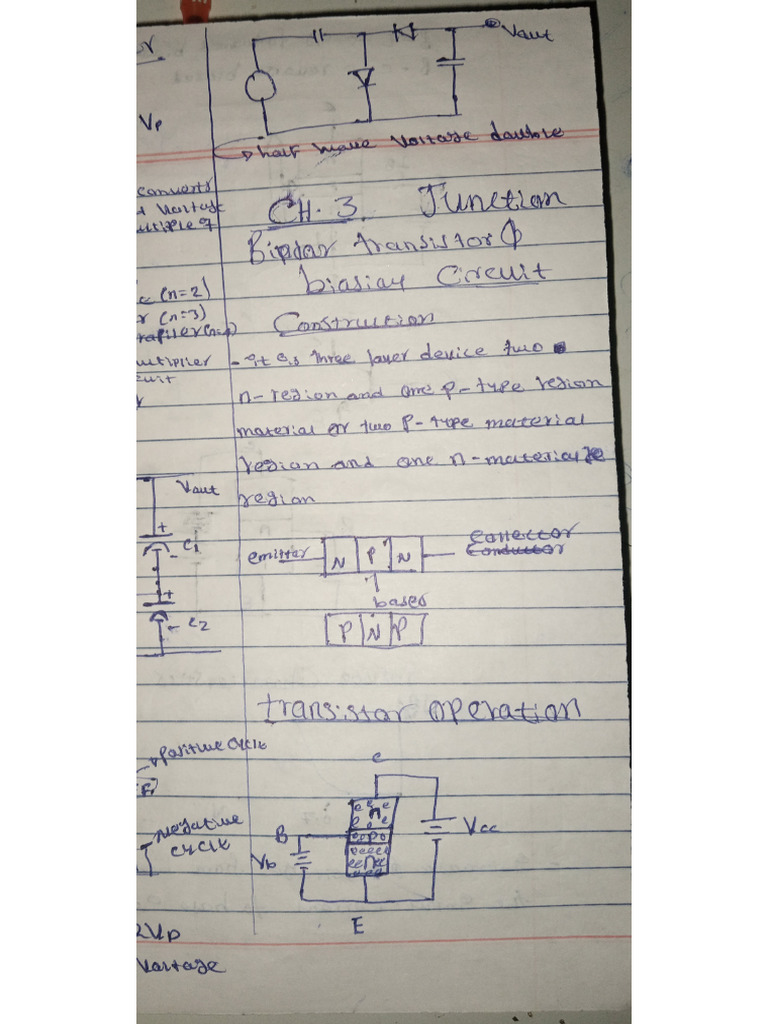 Vp
Vout
half wave voltage double
converts
voltage
CH. 3. Junction
Bipolar transistor &
biasiay Circuit
(n=2)
(n=3)
Construction
- it is three layer device two
n-region and one p-type region
material or two P-type material
region and one n-material
region
Vout
+
- C1
+
- C2
emitter N P N Collector
Conductor
bases
P N P
transistor operation
positive cycle
negative
cycle
C
e e e
n
e e
B
Vb
o o p o
e e e e e
e e n e e
Vcc
E
2Vp
Voltage